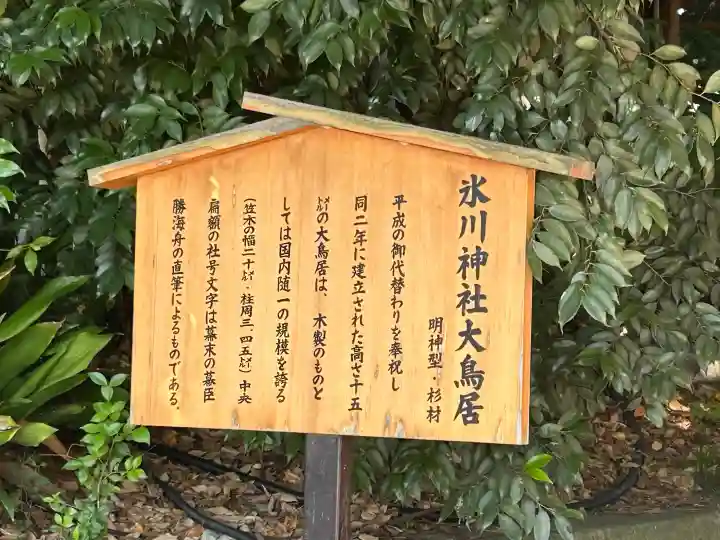 氷川神社大鳥居
明神型・杉材
平成の御代替わりを奉祝し
同二年に建立された高さ十五
㍍の大鳥居は、木製のものと
しては国内随一の規模を誇る
(笠木の幅二十㍍・柱周三.四五㍍)中央
扁額の社号文字は幕末の幕臣
勝海舟の直筆によるものである.